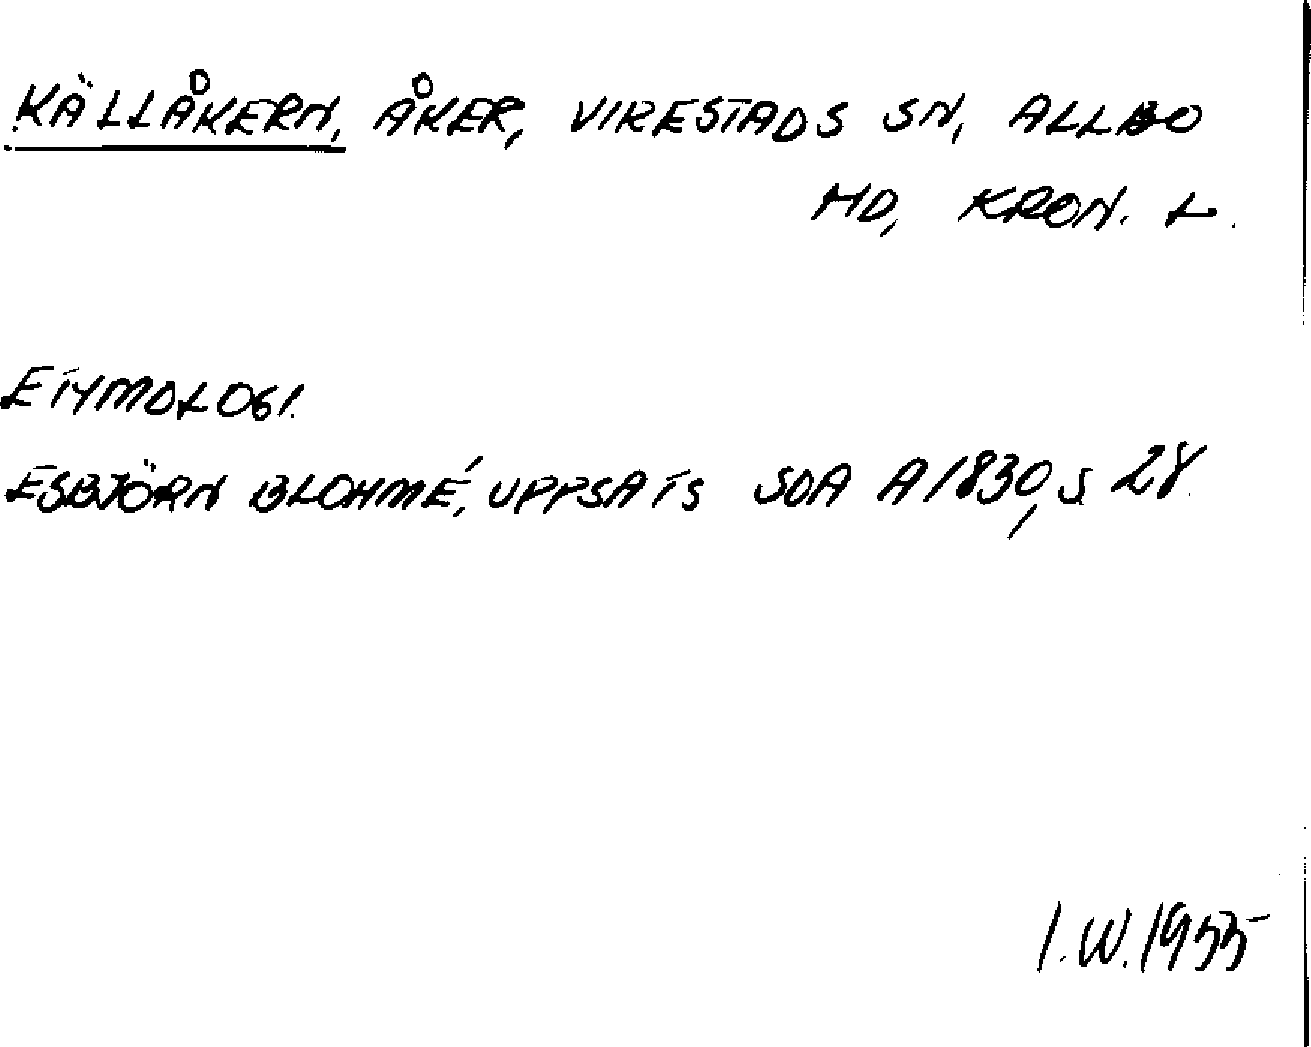 KÄLLÅKERN, ÅKER, VIRESTADS SN, ALLBO
HD, KRON. L.
ETYMOLOGI.
ESBJÖRN BLOHMÉ, UPPSATS SOA A1830, S 28.
I.W.1955